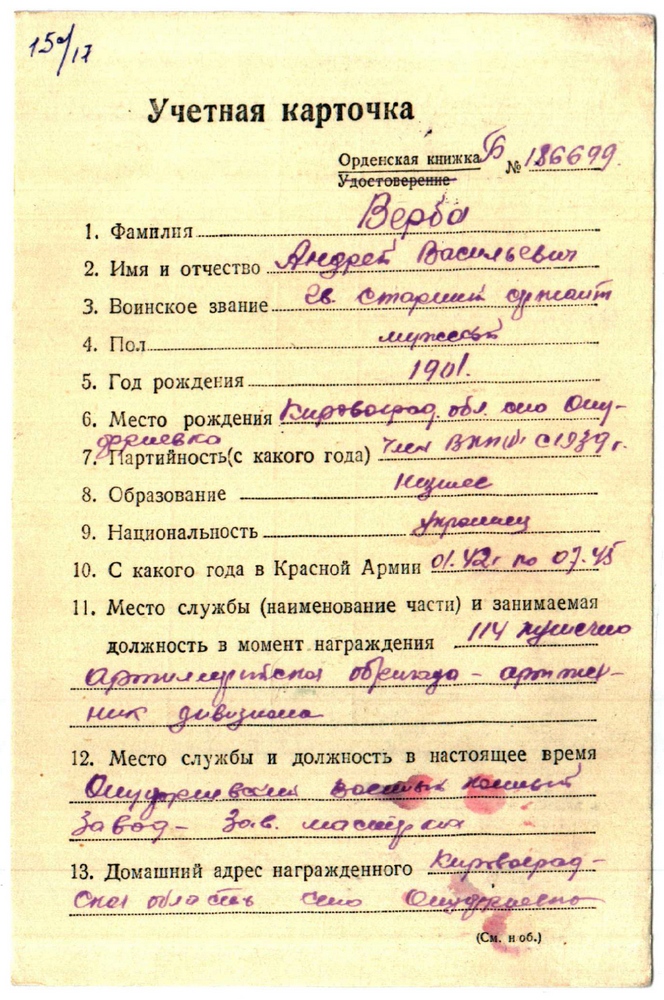 15º/17
Учетная карточка
Орденская книжка Б № 186699
Удостоверение
1. Фамилия Верба
2. Имя и отчество Андрей Васильевич
3. Воинское звание гв. старший сержант
4. Пол мужской
5. Год рождения 1901.
6. Место рождения Кировоград. обл. село Ону-
фриевка
7. Партийность (с какого года) член ВКП(б) с 1939 г.
8. Образование низшее
9. Национальность украинец
10. С какого года в Красной Армии 01.42г по 07.45
11. Место службы (наименование части) и занимаемая
должность в момент награждения 114 пушечно
артиллерийская бригада – арттех-
ник дивизиона
12. Место службы и должность в настоящее время
Онуфриевский конный
завод – Зав. мастерск
13. Домашний адрес награжденного Кировоград-
ская область село Онуфриевка
(См. н об.)